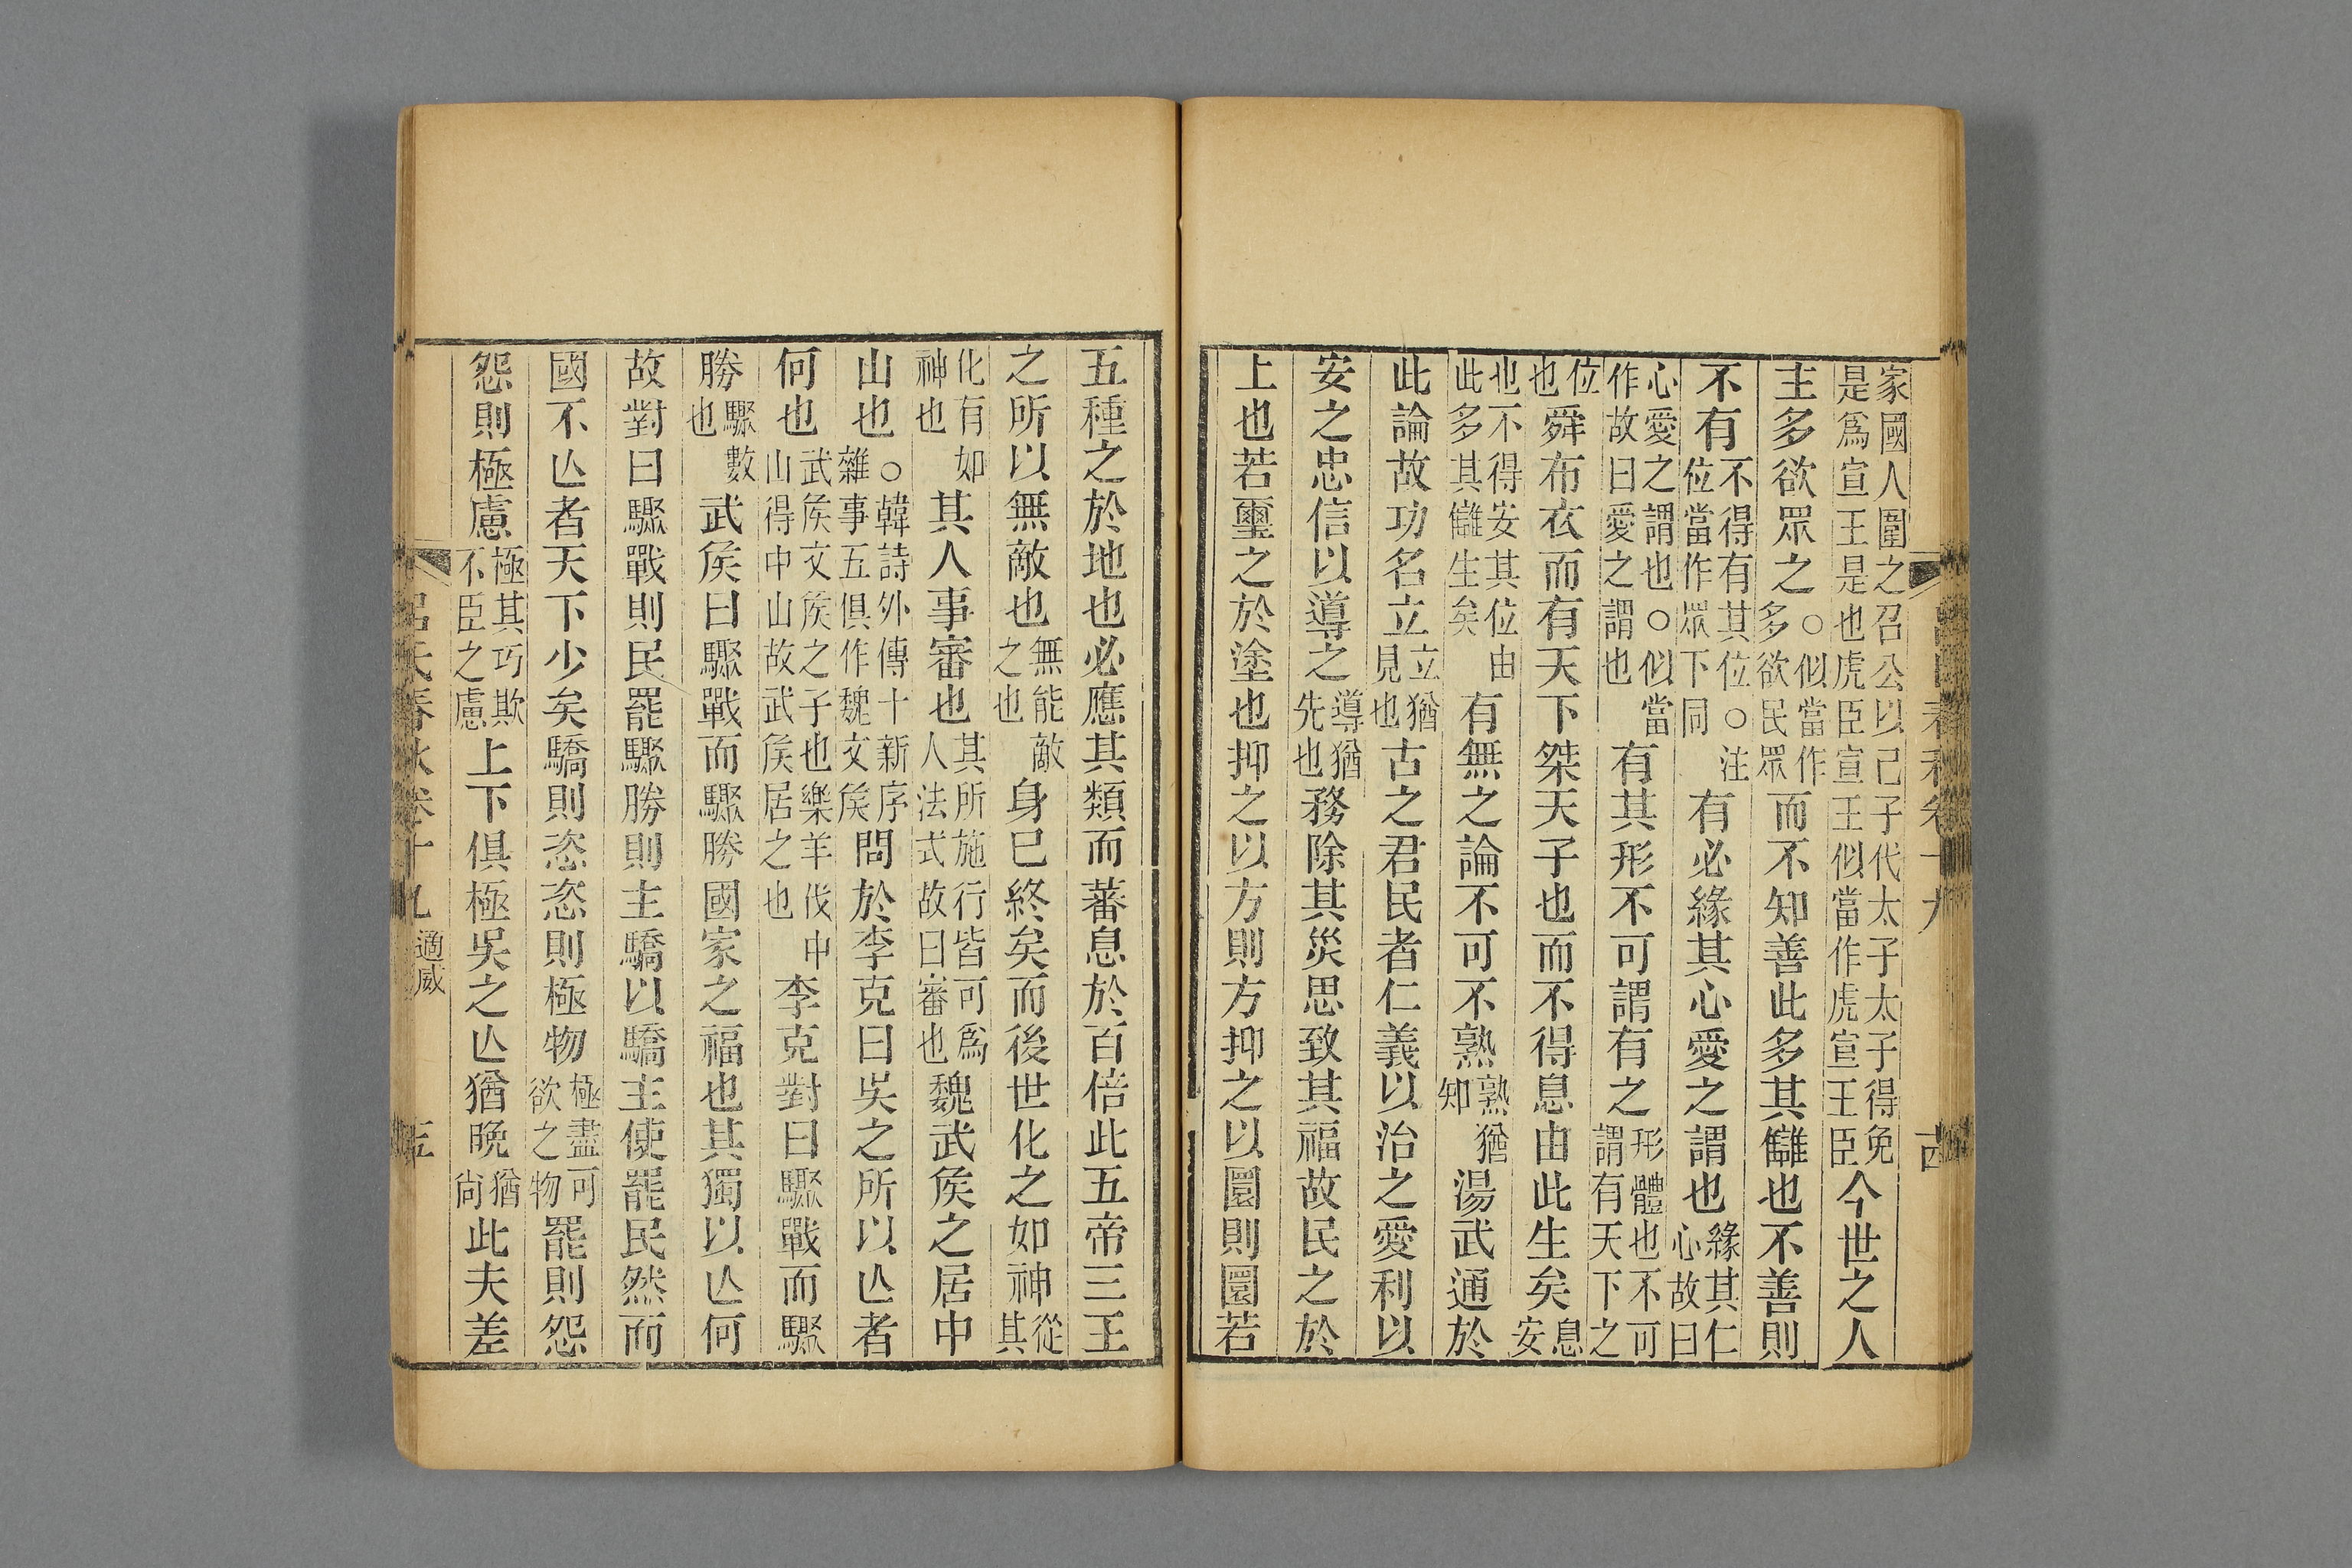 家國人圍之召公以己子代太子太子得免是爲宣王是也虎臣宣王似當作虎宣王臣今世之人
主多欲眾之○似當作多欲民眾而不知善此多其讎也不善則
不有不得有其位○注位當作眾下同有必緣其心愛之謂也緣其仁心故曰
心愛之謂也○似當作故曰愛之謂也有其形不可謂有之形體也不可謂有天下之
位也舜布衣而有天下桀天子也而不得息由此生矣息安
也不得安其位由此多其讎生矣有無之論不可不熟熟猶知湯武通於
此論故功名立立猶見也古之君民者仁義以治之愛利以
安之忠信以導之導猶先也務除其災思致其福故民之於
上也若璽之於塗也抑之以方則方抑之以圜則圜若
五種之於地也必應其類而蕃息於百倍此五帝三王
之所以無敵也無能敵之也身已終矣而後世化之如神從其
化有如神也其人事審也其所施行皆可爲人法式故曰審也魏武矦之居中
山也○韓詩外傳十新序雜事五俱作魏文矦問於李克曰吳之所以亾者
何也武矦文矦之子也樂羊伐中山得中山故武矦居之也李克對曰驟戰而驟
勝驟數也武矦曰驟戰而驟勝國家之福也其獨以亾何
故對曰驟戰則民罷驟勝則主驕以驕主使罷民然而
國不亾者天下少矣驕則恣恣則極物極盡可欲之物罷則怨
怨則極慮極其巧欺不臣之慮上下俱極吳之亾猶晚猶尙此夫差
呂氏春秋卷十九 適威 十五